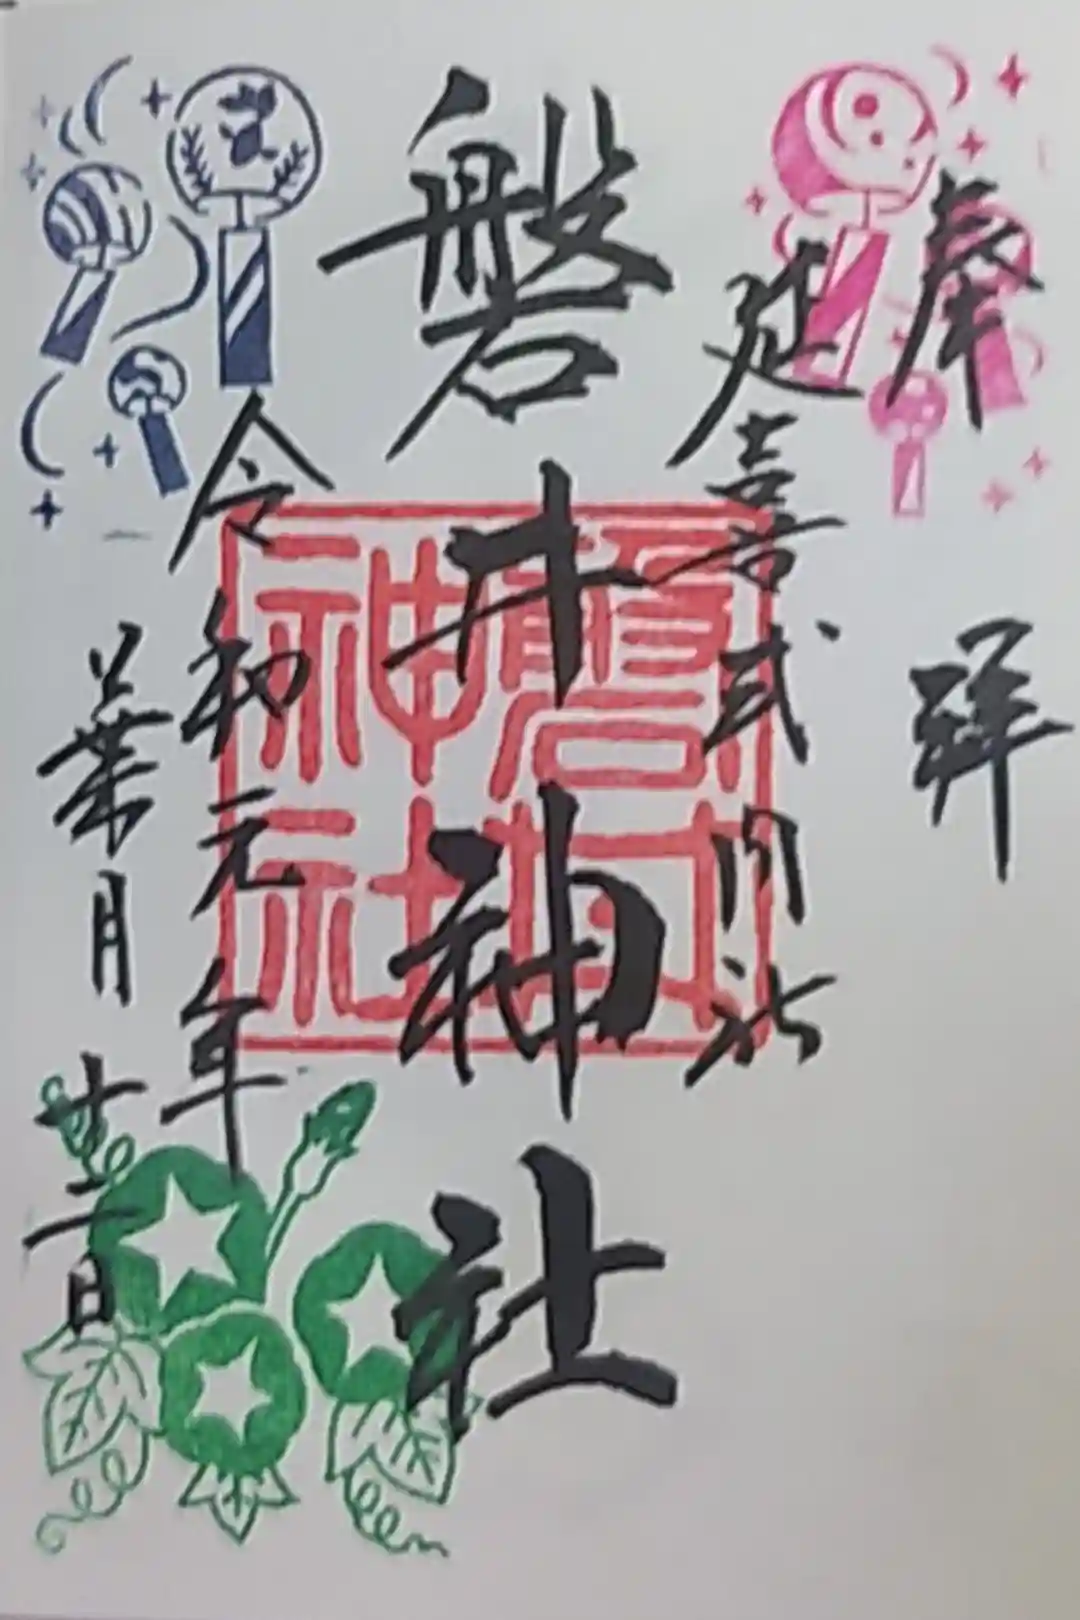 奉拝
延喜式内社
磐井神社
令和元年
葉月廿一日
磐井神社